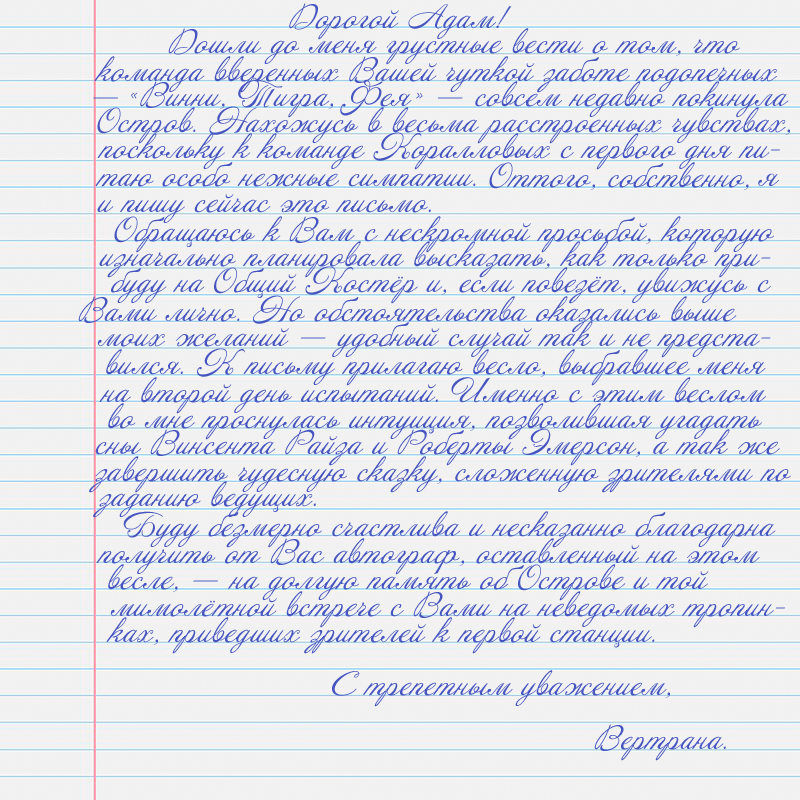 Дорогой Адам!
Дошли до меня грустные вести о том, что
команда вверенных Вашей чуткой заботе подопечных
— «Винни, Тигра, Фея» — совсем недавно покинула
Остров. Нахожусь в весьма расстроенных чувствах,
поскольку к команде Коралловых с первого дня пи-
таю особо нежные симпатии. Оттого, собственно, я
и пишу сейчас это письмо.
Обращаюсь к Вам с нескромной просьбой, которую
изначально планировала высказать, как только при-
буду на Общий Костёр и, если повезёт, увижусь с
Вами лично. Но обстоятельства оказались выше
моих желаний — удобный случай так и не предста-
вился. К письму прилагаю весло, выбравшее меня
на второй день испытаний. Именно с этим веслом
во мне проснулась интуиция, позволившая угадать
сны Винсента Райза и Роберты Эмерсон, а так же
завершить чудесную сказку, сложенную зрителями по
заданию ведущих.
Буду безмерно счастлива и несказанно благодарна
получить от Вас автограф, оставленный на этом
весле, — на долгую память об Острове и той
мимолётной встрече с Вами на неведомых тропин-
ках, приведших зрителей к первой станции.
С трепетным уважением,
Вертрана.